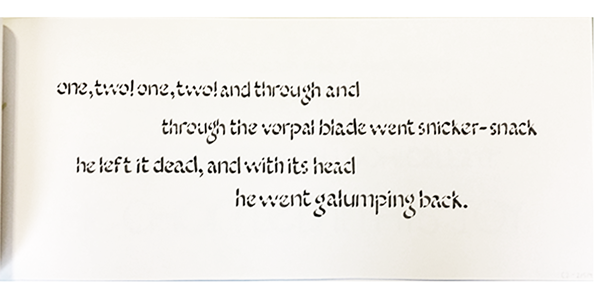 one, two! one, two! and through and
through the vorpal blade went snicker-snack
he left it dead, and with its head
he went galumphing back.